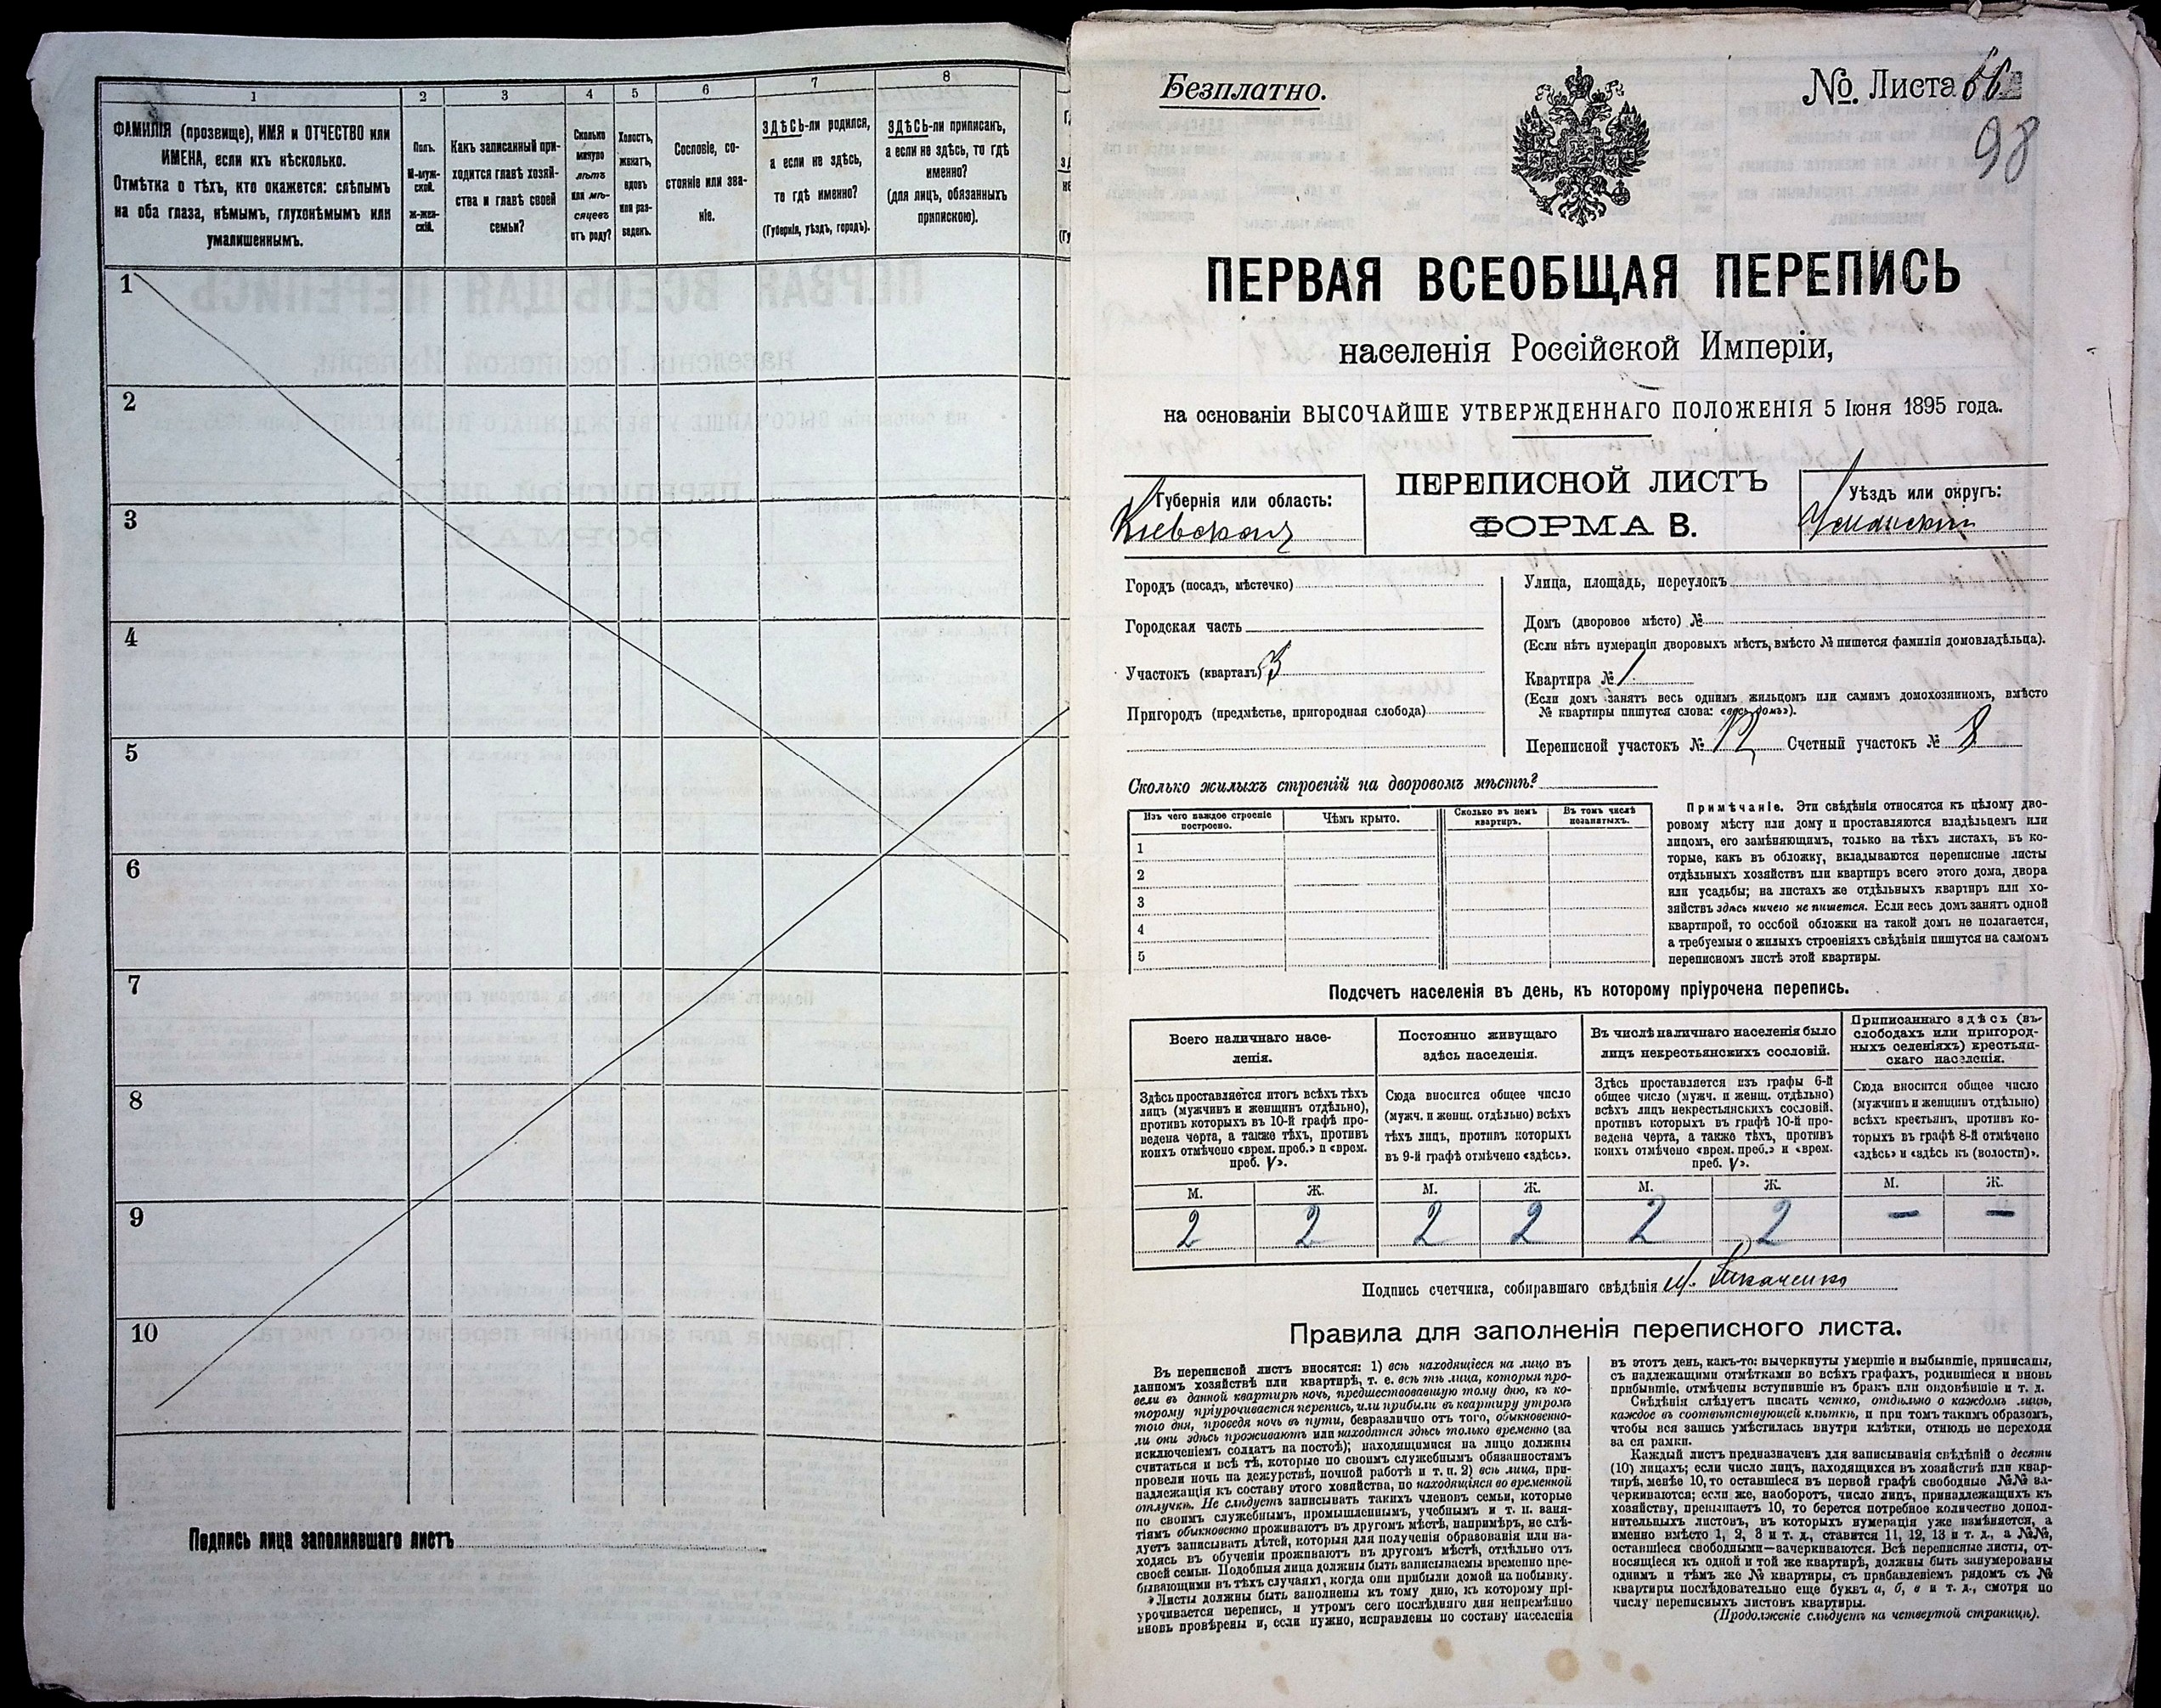 1
2
3
4
5
6
7
8
ФАМИЛІЯ (прозвище), ИМЯ и ОТЧЕСТВО или
ИМЕНА, если ихъ нѣсколько.
Отмѣтка о тѣхъ, кто окажется: слѣпымъ
на оба глаза, нѣмымъ, глухонѣмымъ или
умалишеннымъ.
Полъ.
М-муж-
ской.
Ж-жен-
скій.
Какъ записанный при-
ходится главѣ хозяй-
ства и главѣ своей
семьи?
Сколько
минуло
лѣтъ
или мѣ-
сяцевъ
отъ роду?
Холостъ,
женатъ,
вдовъ
или раз-
веденъ.
Сословіе, со-
стояніе или зва-
ніе.
ЗДѢСЬ-ли родился,
а если не здѣсь,
то гдѣ именно?
(Губернія, уѣздъ, городъ).
ЗДѢСЬ-ли приписанъ,
а если не здѣсь, то гдѣ
именно?
(для лицъ, обязанныхъ
припискою).
1
2
3
4
5
6
7
8
9
10
Подпись лица заполнявшаго листъ
Безплатно.
№. Листа 66
98
ПЕРВАЯ ВСЕОБЩАЯ ПЕРЕПИСЬ
населенія Россійской Имперіи,
на основаніи ВЫСОЧАЙШЕ УТВЕРЖДЕННАГО ПОЛОЖЕНІЯ 5 Іюня 1895 года.
Губернія или область:
Кіевская
ПЕРЕПИСНОЙ ЛИСТЪ
ФОРМА В.
Уѣздъ или округъ:
Уманскій
Городъ (посадъ, мѣстечко)
Городская часть
Участокъ (кварталъ) 3
Пригородъ (предмѣстье, пригородная слобода)
Улица, площадь, переулокъ
Домъ (дворовое мѣсто) №
(Если нѣтъ нумераціи дворовыхъ мѣстъ, вмѣсто № пишется фамилія домовладѣльца).
Квартира № 1
(Если домъ занятъ весь однимъ жильцомъ или самимъ домохозяиномъ, вмѣсто
№ квартиры пишутся слова: «весь домъ»).
Переписной участокъ № 12 Счетный участокъ № 8
Сколько жилыхъ строеній на дворовомъ мѣстѣ?
Изъ чего каждое строеніе
построено.
Чѣмъ крыто.
Сколько въ немъ
квартиръ.
Въ томъ числѣ
незанятыхъ.
1
2
3
4
5
Примѣчаніе. Эти свѣдѣнія относятся къ цѣлому дво-
ровому мѣсту или дому и проставляются владѣльцемъ или
лицомъ, его замѣняющимъ, только на тѣхъ листахъ, въ ко-
торые, какъ въ обложку, вкладываются переписные листы
отдѣльныхъ хозяйствъ или квартиръ всего этого дома, двора
или усадьбы; на листахъ же отдѣльныхъ квартиръ или хо-
зяйствъ здѣсь ничего не пишется. Если весь домъ занятъ одной
квартирой, то особой обложки на такой домъ не полагается,
а требуемыя о жилыхъ строеніяхъ свѣдѣнія пишутся на самомъ
переписномъ листѣ этой квартиры.
Подсчетъ населенія въ день, къ которому пріурочена перепись.
Всего наличнаго насе-
ленія.
Здѣсь проставляется итогъ всѣхъ тѣхъ
лицъ (мужчинъ и женщинъ отдѣльно),
противъ которыхъ въ 10-й графѣ про-
ведена черта, а также тѣхъ, противъ
коихъ отмѣчено «врем. преб.» и «врем.
преб. V».
Постоянно живущаго
здѣсь населенія.
Сюда вносится общее число
(мужч. и женщ. отдѣльно) всѣхъ
тѣхъ лицъ, противъ которыхъ
въ 9-й графѣ отмѣчено «здѣсь».
Въ числѣ наличнаго населенія было
лицъ некрестьянскихъ сословій.
Здѣсь проставляется изъ графы 6-й
общее число (мужч. и женщ. отдѣльно)
всѣхъ лицъ некрестьянскихъ сословій.
противъ которыхъ въ графѣ 10-й про-
ведена черта, а также тѣхъ, противъ
коихъ отмѣчено «врем. преб.» и «врем.
преб. V».
Приписаннаго здѣсь (въ
слободахъ или пригород-
ныхъ селеніяхъ) крестьян-
скаго населенія.
Сюда вносится общее число
(мужчинъ и женщинъ отдѣльно)
всѣхъ крестьянъ, противъ ко-
торыхъ въ графѣ 8-й отмѣчено
«здѣсь» и «здѣсь къ (волости)».
М. Ж. М. Ж. М. Ж. М. Ж.
2 2 2 2 2 2 — —
Подпись счетчика, собиравшаго свѣдѣнія
Правила для заполненія переписного листа.
Въ переписной листъ вносятся: 1) всѣ находящіеся на лицо въ
данномъ хозяйствѣ или квартирѣ, т. е. всѣ тѣ лица, которыя про-
вели въ данной квартирѣ ночь, предшествовавшую тому дню, къ ко-
торому пріурочивается перепись, или прибыли въ квартиру утромъ
того дня, проведя ночь въ пути, безразлично отъ того, обыкновенно-
ли они здѣсь проживаютъ или находятся здѣсь только временно (за
исключеніемъ солдатъ на постоѣ); находящимися на лицо должны
считаться и всѣ тѣ, которые по своимъ служебнымъ обязанностямъ
провели ночь на дежурствѣ, ночной работѣ и т. п. 2) всѣ лица, при-
надлежащія къ составу этого хозяйства, но находящіяся во временной
отлучкѣ. Не слѣдуетъ записывать такихъ членовъ семьи, которые
по своимъ служебнымъ, промышленнымъ, учебнымъ и т. п. заня-
тіямъ обыкновенно проживаютъ въ другомъ мѣстѣ, напримѣръ, не слѣ-
дуетъ записывать дѣтей, которыя для полученія образованія или на-
ходясь въ обученіи проживаютъ въ другомъ мѣстѣ, отдѣльно отъ
своей семьи. Подобныя лица должны быть записываемы временно пре-
бывающими въ тѣхъ случаяхъ, когда они прибыли домой на побывку.
Листы должны быть заполнены къ тому дню, къ которому прі-
урочивается перепись, и утромъ сего послѣдняго дня непремѣнно
вновь провѣрены и, если нужно, исправлены по составу населенія
въ этотъ день, какъ-то: вычеркнуты умершіе и выбывшіе, приписаны,
съ надлежащими отмѣтками во всѣхъ графахъ, родившіеся и вновь
прибывшіе, отмѣчены вступившіе въ бракъ или овдовѣвшіе и т. д.
Свѣдѣнія слѣдуетъ писать четко, отдѣльно о каждомъ лицѣ,
каждое въ соотвѣтствующей клѣткѣ, и при томъ такимъ образомъ,
чтобы вся запись умѣстилась внутри клѣтки, отнюдь не переходя
за ея рамки.
Каждый листъ предназначенъ для записыванія свѣдѣній о десяти
(10) лицахъ; если число лицъ, находящихся въ хозяйствѣ или квар-
тирѣ, менѣе 10, то оставшіеся въ первой графѣ свободные №№ за-
черкиваются; если же, наоборотъ, число лицъ, принадлежащихъ къ
хозяйству, превышаетъ 10, то берется потребное количество допол-
нительныхъ листовъ, въ которыхъ нумерація уже измѣняется, а
именно вмѣсто 1, 2, 3 и т. д., ставится 11, 12, 13 и т. д., а №№,
оставшіеся свободными—зачеркиваются. Всѣ переписные листы, от-
носящіеся къ одной и той же квартирѣ, должны быть занумерованы
однимъ и тѣмъ же № квартиры, съ прибавленіемъ рядомъ съ №
квартиры послѣдовательно еще буквъ а, б, в и т. д., смотря по
числу переписныхъ листовъ квартиры.
(Продолженіе слѣдуетъ на четвертой страницѣ).